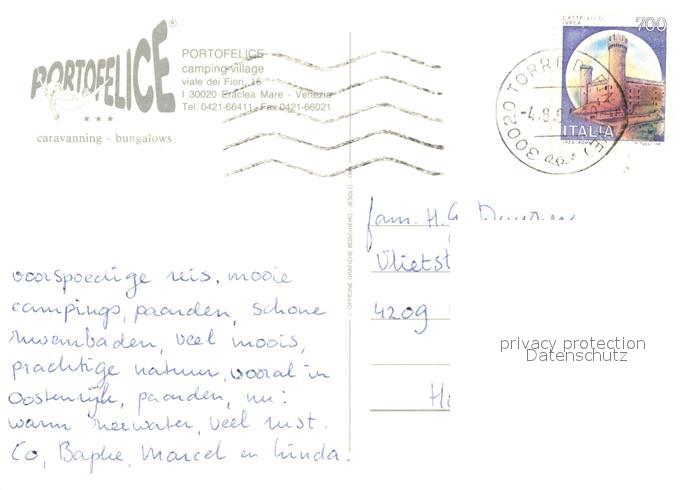 PORTOFELICE®
★★★
caravanning - bungalows
PORTOFELICE
camping-village
viale dei Fiori, 15
I 30020 Eraclea Mare - Venezia
Tel. 0421-66411 - Fax 0421-66021
CASTELLO DI
IVREA
700
ITALIA
30020 TORRE DI
-4.8.9
© OFFICINE GRAFICHE BOSCHIERO - JESOLO - V
voorspoedige reis. mooie
campings, paarden, schone
zwembaden, veel moois,
prachtige natuur, vooral in
Oostenrijk, paarden, nu:
warm zeewater, veel rust.
Co, Bapke, Marcel en Linda.
fam. H.
Vlietst
4209
H
privacy protection
Datenschutz